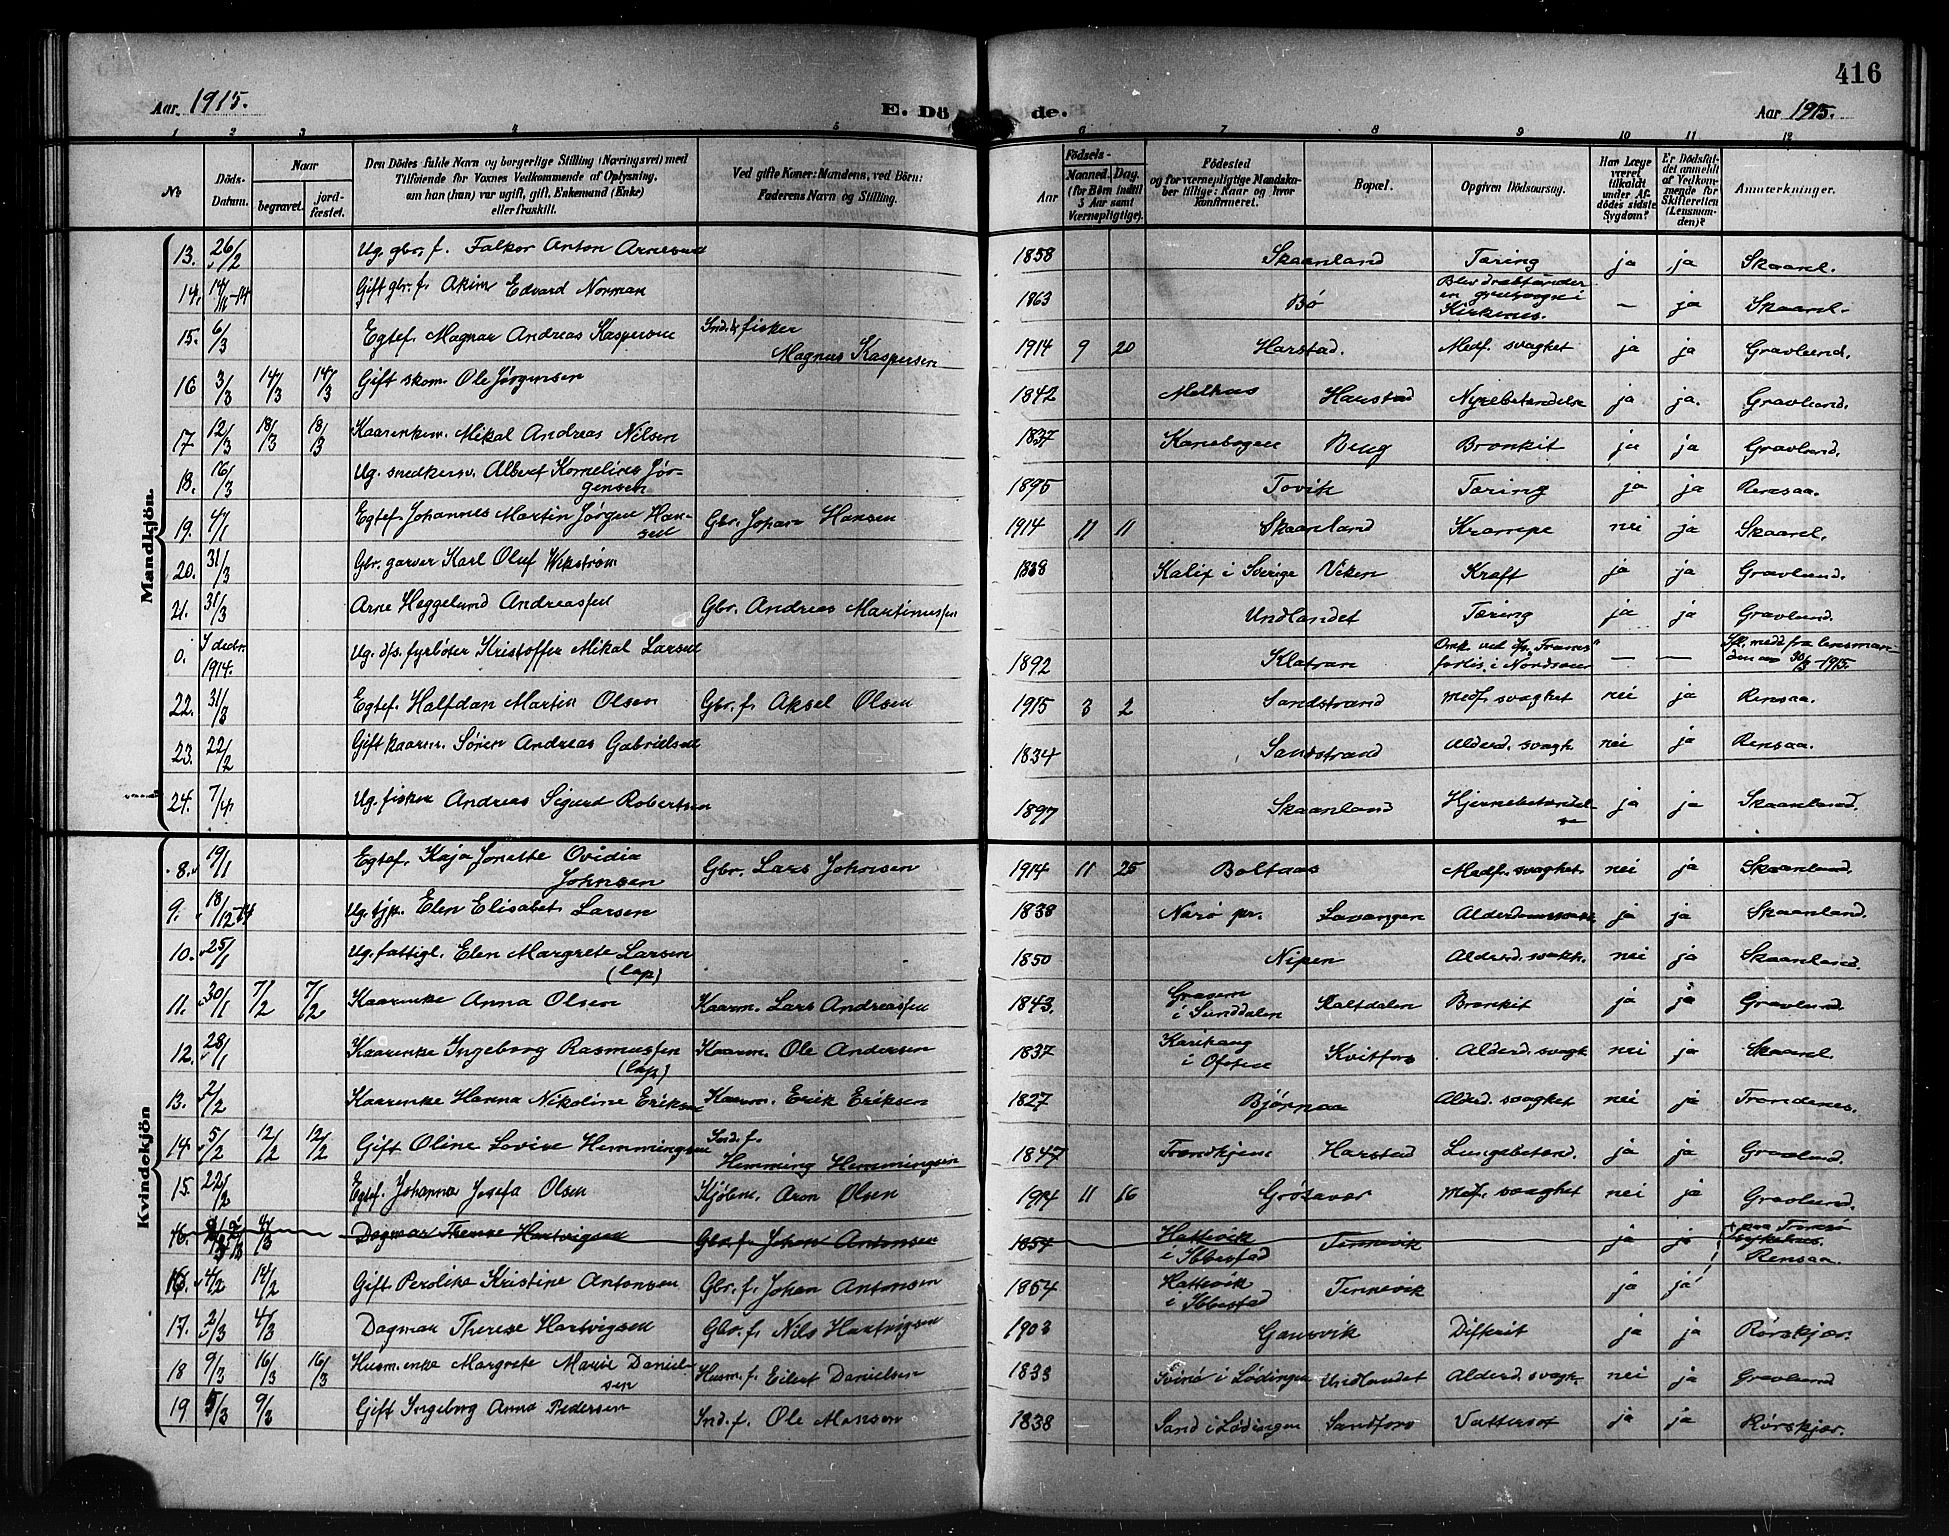 416
Aar 1915.
E. Döde.
Aar 1915.
1 2 3 4 5 6 7 8 9 10 11 12
No
Döds-Datum.
Naar
begravet.
jordfæstet.
Den Dödes fulde Navn og borgerlige Stilling (Næringsvei) med
Tilföiende for Voxnes Vedkommende af Oplysning,
om han (hun) var ugift, gift, Enkemand (Enke)
eller fraskilt.
Ved gifte Koner: Mandens, ved Börn:
Faderens Navn og Stilling.
Aar
Födsels-
Maaned. Dag.
(for Börn indtil
5 Aar samt
Værnepligtige).
Födested
og for værnepligtige Mandskaber tillige: Naar og hvor
konfirmeret.
Bopæl.
Opgiven Dödsaarsag.
Har Læge
været
tilkaldt
under Afdödes sidste
Sygdom?
Er Dödsfaldet anmeldt
af Vedkommende for
Skifteretten
(Lensmanden)?
Anmærkninger.
Mandkjön.
13. 26/2 Ug. gbr. f. Falkor Anton Arnesen 1858 Skaanland Tæring ja ja Skaanl.
14. 14/11-14 Gift gbr. f. Akim Edvard Norman 1863 Bø Blev dræbt under en i Kirkenes. — ja Skaanl.
15. 6/3 Egtef. Magnar Andreas Kaspersen Ind. & fisker Magnus Kaspersen 1914 9 20 Harstad. Medf. svaghet ja ja Gravlund.
16 3/3 14/3 14/3 Gift skom. Ole Jørgensen 1842 Melhus Harstad Nyrebetændelse ja ja. Gravlund.
17. 12/3 18/3 18/3 Kaarenkem. Mikal Andreas Nilsen 1837 Kanebogen Berg Bronkit ja ja Gravlund.
18. 16/3 Ug. snedkersv. Albert Kornelius Jørgensen 1895 Tovik Tæring ja ja Rensaa.
19. 4/1 Egtef. Johannes Martin Jørgen Hansen Gbr. Johan Hansen 1914 11 11 Skaanland Krampe nei ja Skaanl.
20. 31/3 Gbr. garver Karl Oluf Wikstrøm 1838 Kalix i Sverige Viken Kræft ja ja Gravlund.
21. 31/3 Arne Heggelund Andreassen Gbr. Andreas Martinussen Undlandet Tæring ja ja Gravlund.
0. I decbr. 1914. Ug. d/s. fyrbøter Kristoffer Mikal Larsen 1892 Klatran Omk. ved d/s "Frams" forlis. i Nordsøen — — medd fra lensmanden 30/3-1915.
22. 31/3 Egtef. Halfdan Martin Olsen Gbr. f. Aksel Olsen 1915 3 2 Sandstrand Medf. svaghet nei ja Rensaa.
23. 22/2 Gift kaarm. Søren Andreas Gabrielsen 1834 Sandstrand Alderd. svagh. nei ja Rensaa.
24. 7/4 Ug. fisker Andreas Sigurd Robertsen 1897 Skaanland Hjernebetændelse ja ja Skaanland.
Kvindekjön
8. 19/1 Egtef. Kaja Jonette Ovidia Johnsen Gbr. Lars Johnsen 1914 11 25 Boltaas Medf. svaghet. nei ja Skaanland.
9. 18/12-14 Ug. tjp. Elen Elisabet Larsen 1838 Narø pr. Lavangen ja ja Skaanland.
10. 25/1 Ug. fattigl. Elen Margrete Larsen (lap) 1850 Nipen Alderd. svakh. nei ja Skaanland.
11. 30/1 7/2 7/2 Kaarenke Anna Olsen Kaarm. Lars Andreassen 1843. i Sunddalen Kaltdalen Bronkit ja ja Gravlund.
12. 28/1 Kaarenke Ingeborg Rasmussen (lap) Kaarm. Ole Andersen 1837 i Ofoten Kvitfors Alderd. svagh nei ja Skaanl.
13. 2/2 Kaarenke Hanna Nikoline Eriksen Kaarm. Erik Eriksen 1827 Bjørnaa Alderd. svaghet nei ja Trondenes.
14. 5/2 12/2 12/2 Gift Oline Lovise Hemmingsen Ind. f. Hemming Hemmingsen 1847 Trondhjem Harstad Lungebetænd. ja ja Gravlund.
15. 22/2 Egtef. Johanna Josefa Olsen Kjøbm. Aron Olsen 1914 11 16 Grøtavær Medf. svaghet nei ja Gravlund.
16. 4/3 Dagmar Therese Hartvigsen Gbr. f. Johan Antonsen 1854 Hattevik i Ibbestad Tennevik ja ja + paa Tromsø sykehus. Rensaa.
16. 4/2 14/2 Gift Perolike Kristine Antonsen Gbr. f. Johan Antonsen 1854 Hattevik i Ibbestad Tennevik ja ja
17. 2/3 4/3 Dagmar Therese Hartvigsen Gbr. f. Nils Hartvigsen 1903 Gausvik Difterit ja ja Rørskjær.
18 9/3 16/3 16/3 Husm. enke Margrete Marie Danielsen Husm. f. Eilert Danielsen 1833 Svinø i Lødingen Undlandet Alderd. svagh. nei ja Gravlund
19 5/3 9/3 Gift Ingeborg Anna Pedersen Ind. f. Ole Hansen 1838 Sand i Lødingen Sandfors Vattersot ja ja Rørskjær.